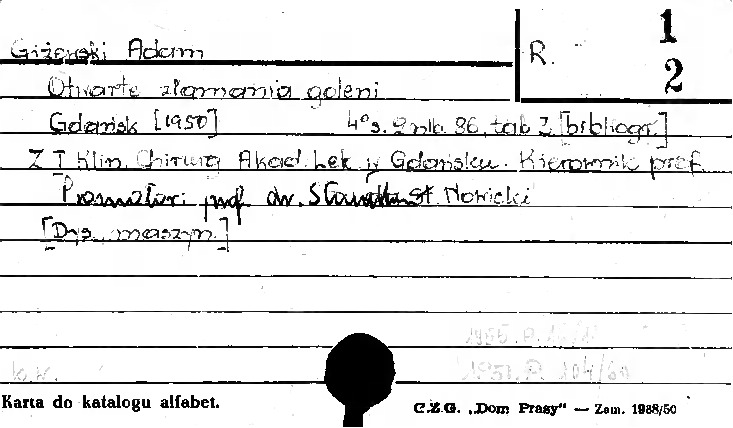 Giżewski Adam
R. 1
2
Otwarte złamania goleni
Gdańsk [1950] 4° s. 2 nlb. 86, tab 2 [bibliogr.]
Z I Klin. Chirurg Akad. Lek w Gdańsku. Kierownik prof.
Promotor: prof. dr. St. Nowicki
[Dys., maszyn.]
K.K.
Karta do katalogu alfabet.
C.Z.G. „Dom Prasy" — Zam. 1988/50